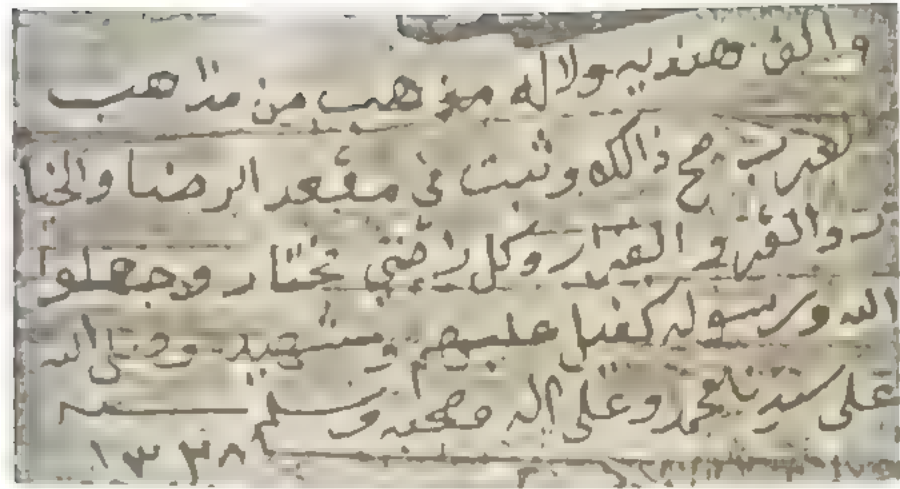 والف هنديه ولا له مذهب من مذاهب
لعرب صح ذالكه وثبت في مقعد الرضا والخيا
ر والفرر و القرار وكل راضي مختار وجعلو
الله ورسوله كفيل عليهم وشهيد وصلى الله
على سيدنا محمد وعلى اله صحبه وسلم سنه
١٣٣٨